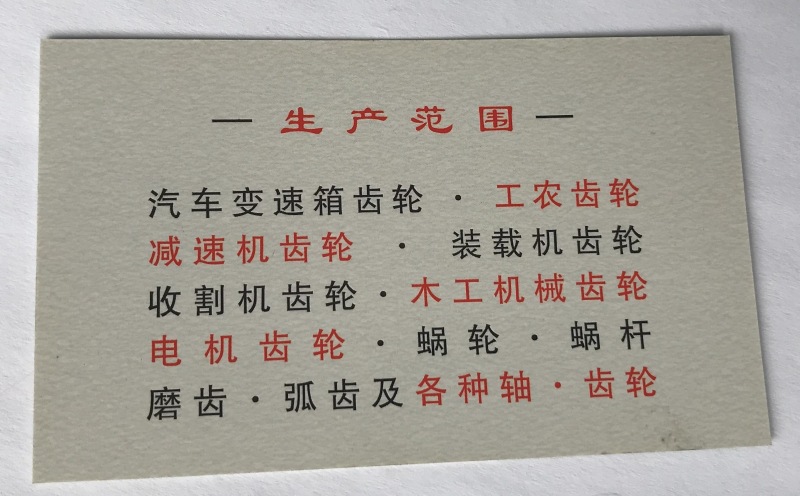 — 生产范围 —
汽车变速箱齿轮 · 工农齿轮
减速机齿轮 · 装载机齿轮
收割机齿轮 · 木工机械齿轮
电机齿轮 · 蜗轮 · 蜗杆
磨齿 · 弧齿及各种轴 · 齿轮